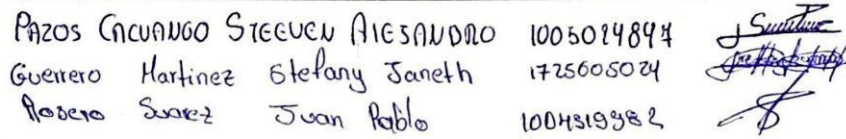 PAZOS CACUANGO STEEVEN ALEJANDRO 1005024847
Guerrero Martinez Stefany Janeth 1725605024
Rosero Suarez Juan Pablo 1004319982